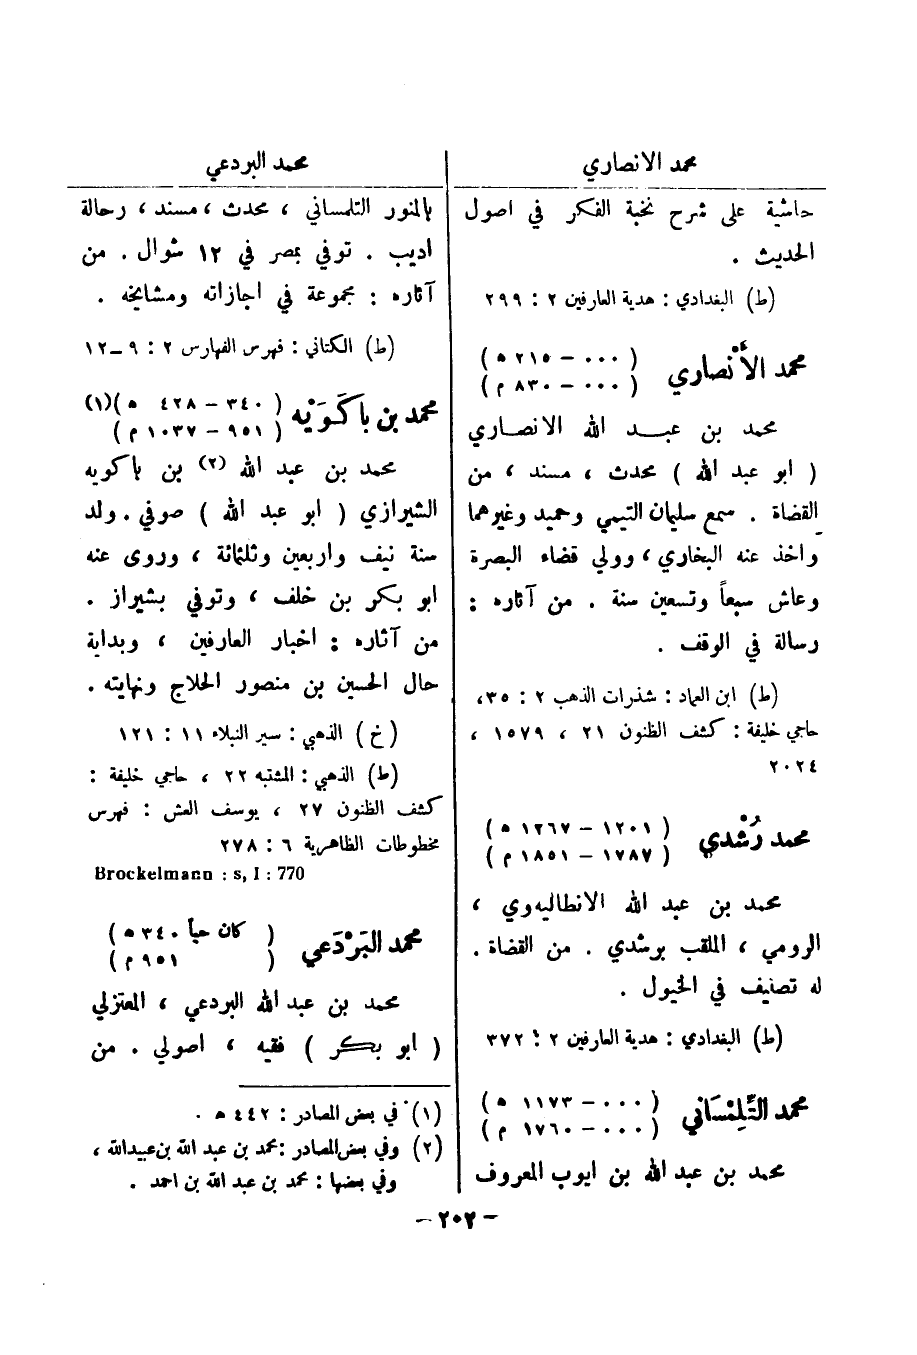 محمد الانصاري
حاشية على شرح نخبة الفكر في اصول
الحديث .
(ط) البغدادي : هدية العارفين ٢ : ٢٩٩
محمد الأَنْصاري ( ٠٠٠ – ٢١٥ ه )
( ٠٠٠ – ٨٣٠ م )
محمد بن عبد الله الانصاري
( ابو عبد الله ) محدث ، مسند ، من
القضاة . سمع سليمان التيمي وحميد وغيرهما
واخذ عنه البخاري ، وولي قضاء البصرة
وعاش سبعاً وتسعين سنة . من آثاره :
رسالة في الوقف .
(ط) ابن العماد : شذرات الذهب ٢ : ٣٥،
حاجي خليفة : كشف الظنون ٢١ ، ١٥٧٩ ،
٢٠٢٤
محمد رُشْدي ( ١٢٠١ – ١٢٦٧ ه )
( ١٧٨٧ – ١٨٥١ م )
محمد بن عبد الله الانطاليهوي ،
الرومي ، الملقب برشدي . من القضاة .
له تصنيف في الخيول .
(ط) البغدادي : هدية العارفين ٢ : ٣٧٢
محمد التِّلِمْسَاني ( ٠٠٠ – ١١٧٣ ه )
( ٠٠٠ – ١٧٦٠ م )
محمد بن عبد الله بن ايوب المعروف
محمد البردعي
بالمنور التلمساني ، محدث ، مسند ، رحالة
اديب . توفي بمصر في ١٢ شوال . من
آثاره : مجموعة في اجازاته ومشايخه .
(ط) الكتاني : فهرس الفهارس ٢ : ٩ – ١٢
محمد بن باكَوَيْه ( ٣٤٠ – ٤٢٨ ه )(١)
( ٩٥١ – ١٠٣٧ م )
محمد بن عبد الله (٢) بن باكويه
الشيرازي ( ابو عبد الله ) صوفي . ولد
سنة نيف واربعين وثلثمائة ، وروى عنه
ابو بكر بن خلف ، وتوفي بشيراز .
من آثاره : اخبار العارفين ، وبداية
حال الحسين بن منصور الحلاج ونهايته .
(خ) الذهبي : سير النبلاء ١١ : ١٢١
(ط) الذهبي : المشتبه ٢٢ ، حاجي خليفة :
كشف الظنون ٢٧ ، يوسف العش : فهرس
مخطوطات الظاهرية ٦ : ٢٧٨
Brockelmann : s, I : 770
محمد البَرْدَعي ( كان حياً ٣٤٠ ه )
( ٩٥١ م )
محمد بن عبد الله البردعي ، المعتزلي
( ابو بكر ) فقيه ، اصولي . من
(١) في بعض المصادر : ٤٤٢ ه .
(٢) وفي بعض المصادر : محمد بن عبد الله بن عبيدالله ،
وفي بعضها : محمد بن عبد الله بن احمد .
– ٢٠٢ –